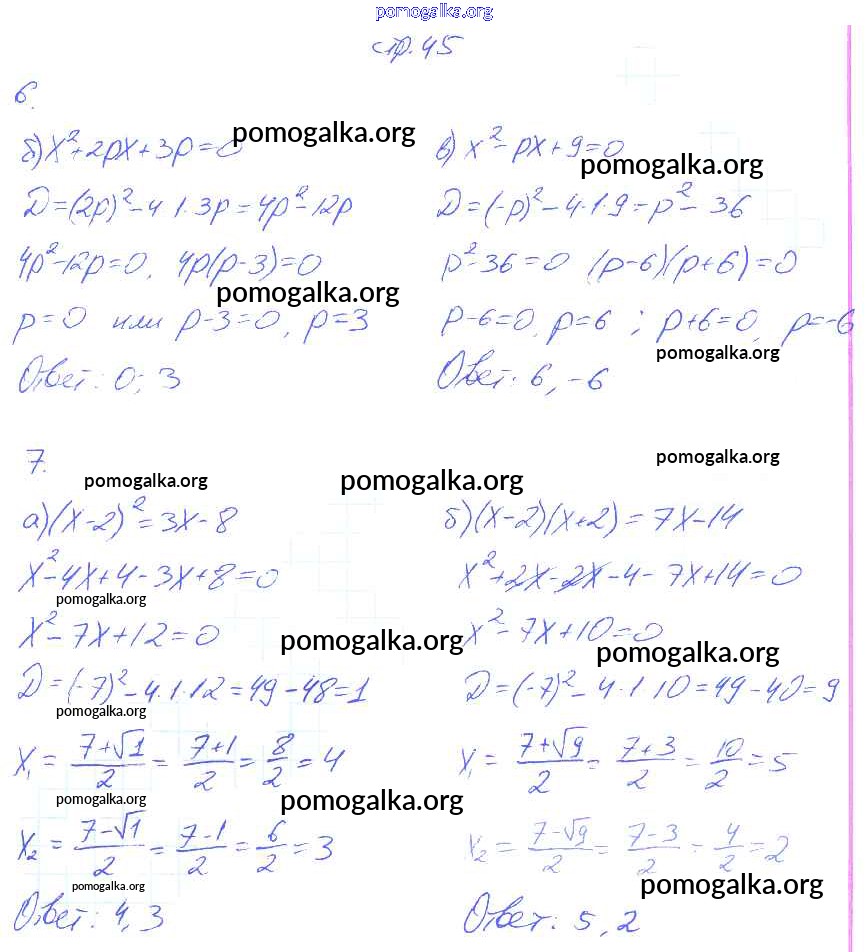 pomogalka.org
стр. 45
6.
б) x²+2px+3p=0 pomogalka.org
D=(2p)²-4·1·3p=4p²-12p
4p²-12p=0, 4p(p-3)=0
pomogalka.org
p=0 или p-3=0, p=3
Ответ: 0; 3
в) x²-px+9=0
pomogalka.org
D=(-p)²-4·1·9=p²-36
p²-36=0 (p-6)(p+6)=0
p-6=0, p=6 ; p+6=0, p=-6
pomogalka.org
Ответ: 6, -6
7.
pomogalka.org
pomogalka.org
pomogalka.org
а) (x-2)²=3x-8
x²-4x+4-3x+8=0
pomogalka.org
x²-7x+12=0
pomogalka.org
D=(-7)²-4·1·12=49-48=1
pomogalka.org
x₁ = (7+√1)/2 = (7+1)/2 = 8/2 = 4
pomogalka.org
pomogalka.org
x₂ = (7-√1)/2 = (7-1)/2 = 6/2 = 3
pomogalka.org
Ответ: 4, 3
б) (x-2)(x+2)=7x-14
x²+2x-2x-4-7x+14=0
x²-7x+10=0
pomogalka.org
D=(-7)²-4·1·10=49-40=9
x₁ = (7+√9)/2 = (7+3)/2 = 10/2 = 5
x₂ = (7-√9)/2 = (7-3)/2 = 4/2 = 2
pomogalka.org
Ответ: 5, 2